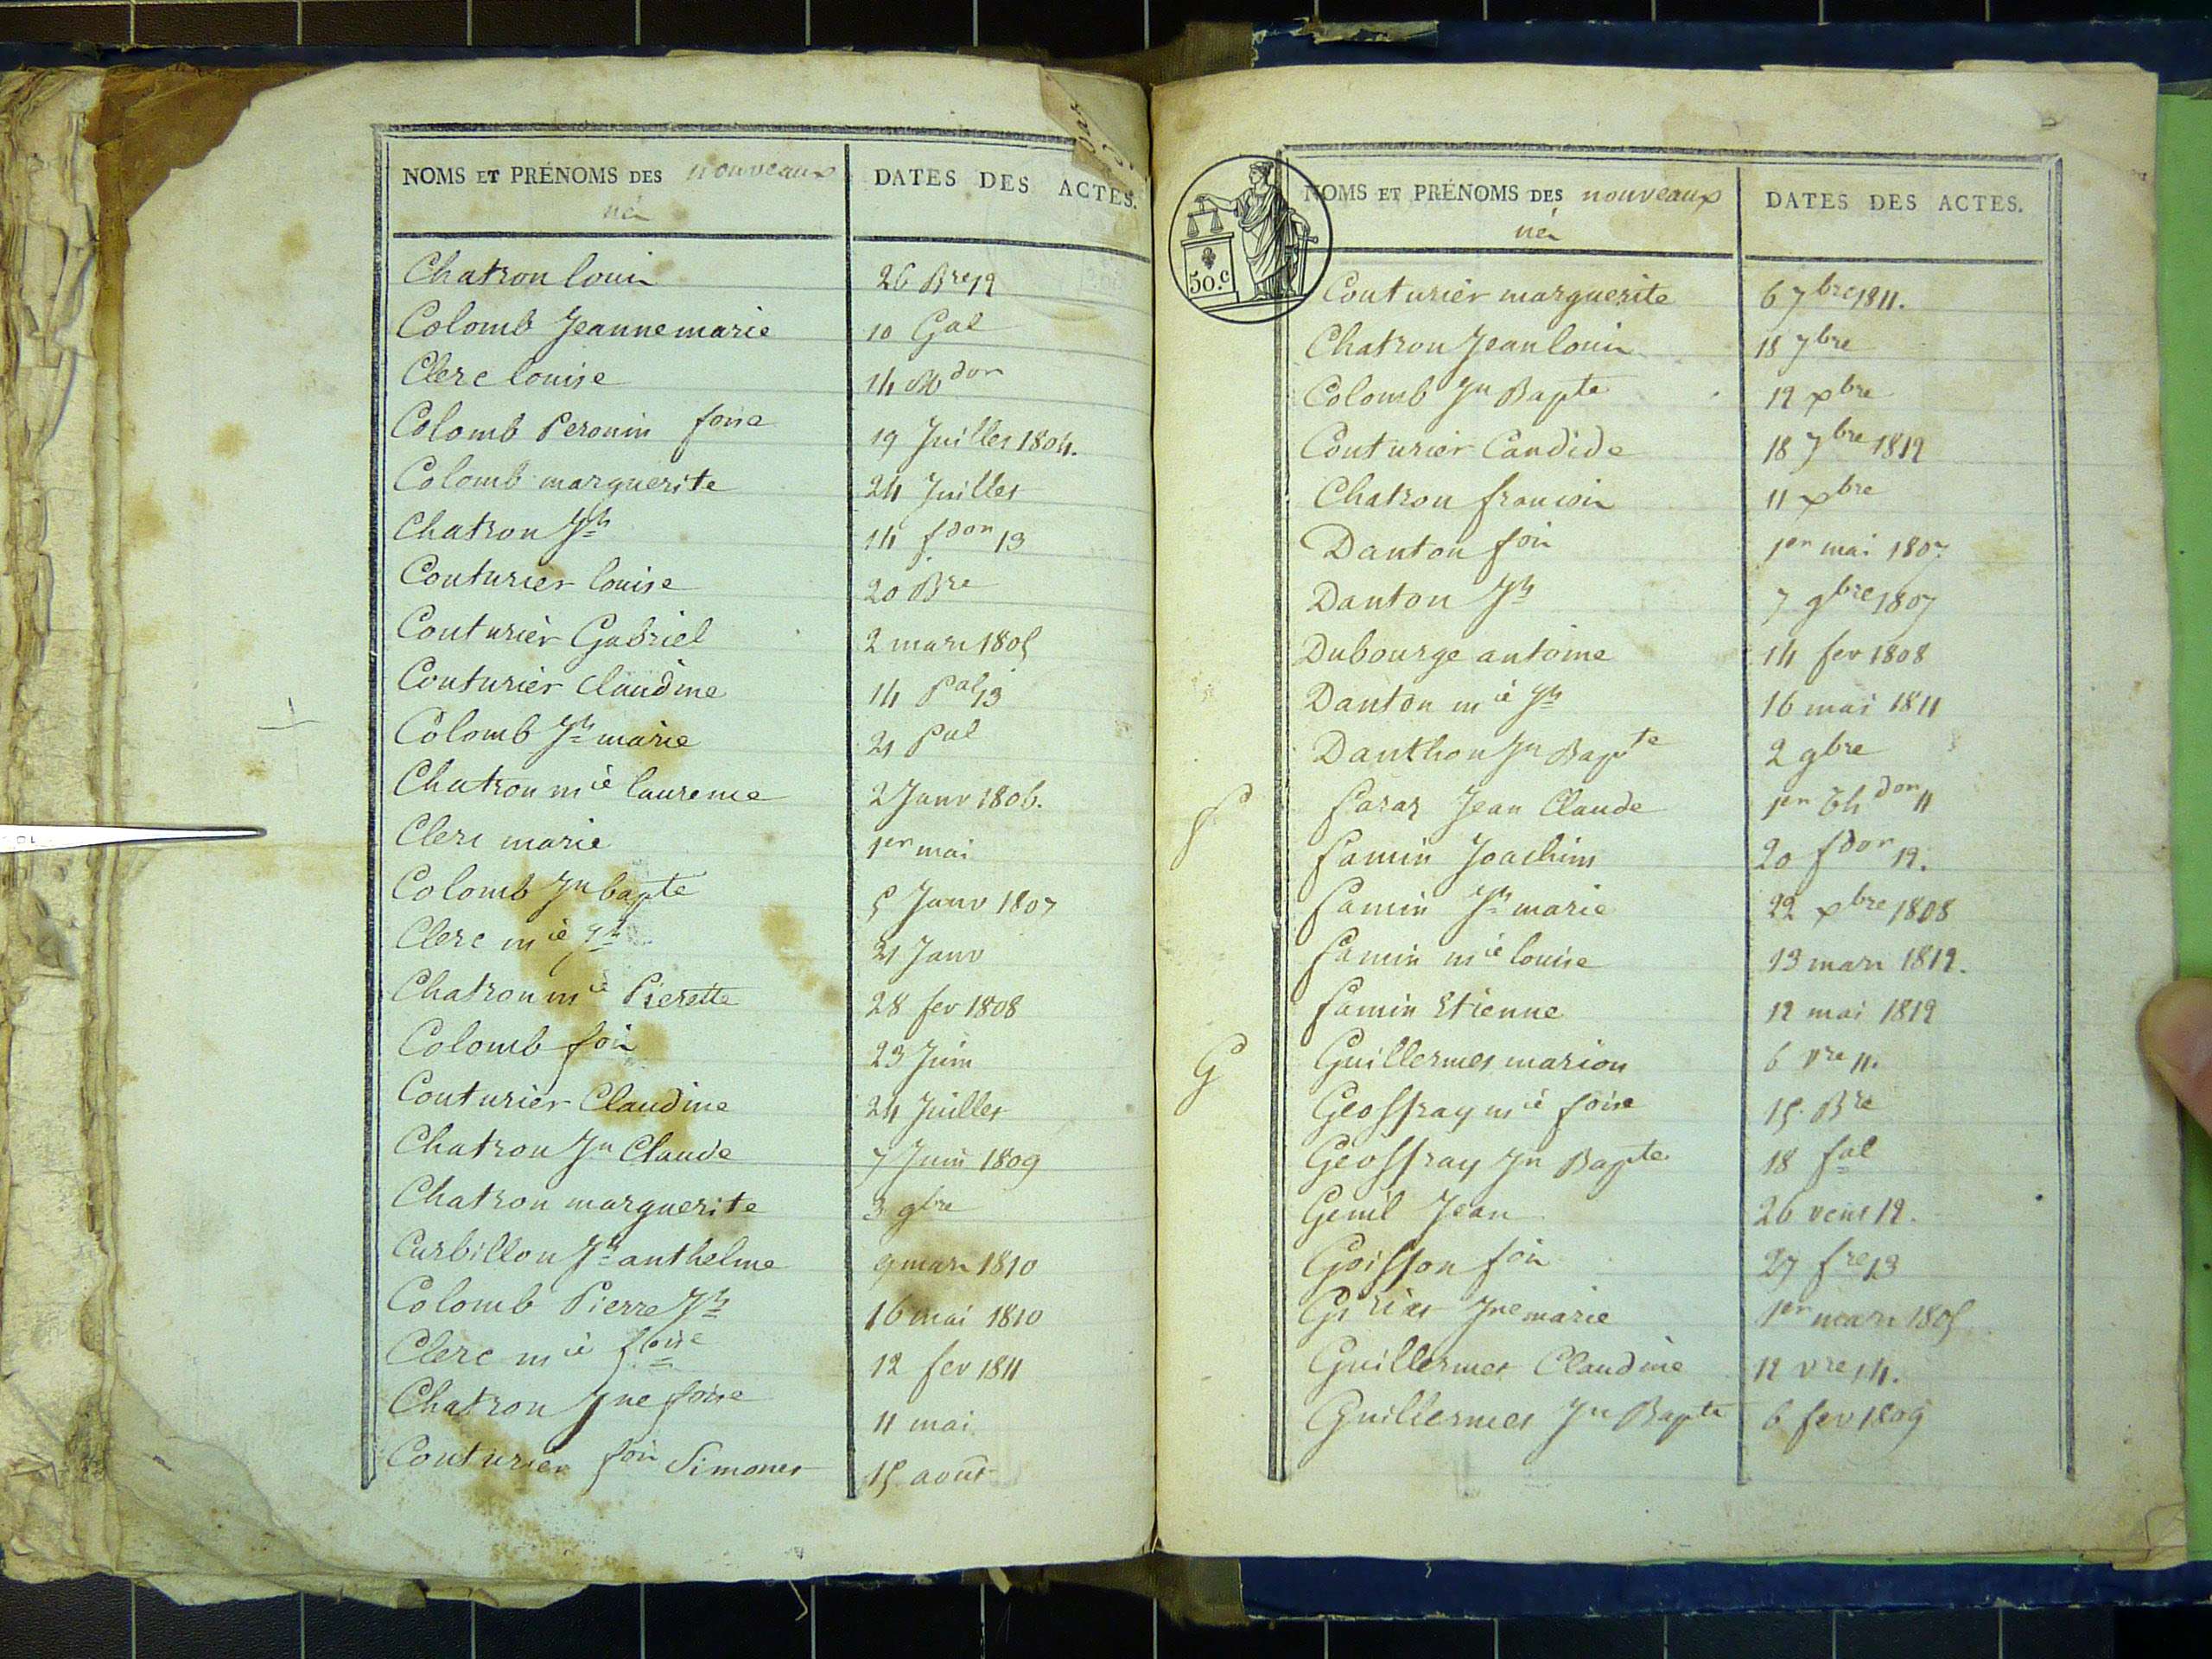 NOMS ET PRÉNOMS DES nouveaux DATES DES ACTES.
nés
Chatron louis 26 Bre 12
Colomb Jeanne marie 10 Gal
Clerc louise 14 Mdor
Colomb Peronin foise 19 Juillet 1804.
Colomb marguerite 24 Juillet
Chatron Jh 14 fdor 13
Couturier louise 20 Bre
Couturier Gabriel 2 mars 1805
Couturier Claudine 14 Pal 13
Colomb Jh marie 21 Pal
Chatron mie laurence 2 Janv 1806.
Clerc marie 1er mai
Colomb Jn bapte 5 Janv 1807
Clerc mie Jh 21 Janv
Chatron mie Pierette 28 fev 1808
Colomb fois 23 Juin
Couturier Claudine 24 Juillet
Chatron Jn Claude 7 Juin 1809
Chatron marguerite 3 9bre
Curbillon Jh anthelme 9 mars 1810
Colomb Pierre Jh 16 mai 1810
Clerc mie foise 12 fev 1811
Chatron Jne foise 11 mai
Couturier fois Simones 15 août
NOMS ET PRÉNOMS DES nouveaux DATES DES ACTES.
nés
50.c
Couturier marguerite 6 7bre 1811.
Chatron Jean louis 18 7bre
Colomb Jn Bapte 12 xbre
Couturier Candide 18 7bre 1812
Chatron francois 11 xbre
Danton fois 1er mai 1807
Danton Jh 7 9bre 1807
Dubourge antoine 14 fev 1808
Danton mie Jh 16 mai 1811
Danthon Jn Bapte 2 9bre
F Faraz Jean Claude 1er thdor 11
Famin Joachim 20 fdor 12.
Famin Jh marie 22 xbre 1808
Famin mie louise 13 mars 1812.
Famin Etienne 12 mai 1812
G Guillermet marion 6 vre 11.
Geoffray mie foise 15 Bre
Geoffray Jn Bapte 18 fal
Genil Jean 26 vent 12.
Goiffon fois 27 fre 13
Jne marie 1er mars 1805
Guillermet Claudine 12 vre 14.
Guillermet Jn Bapte 6 fev 1809